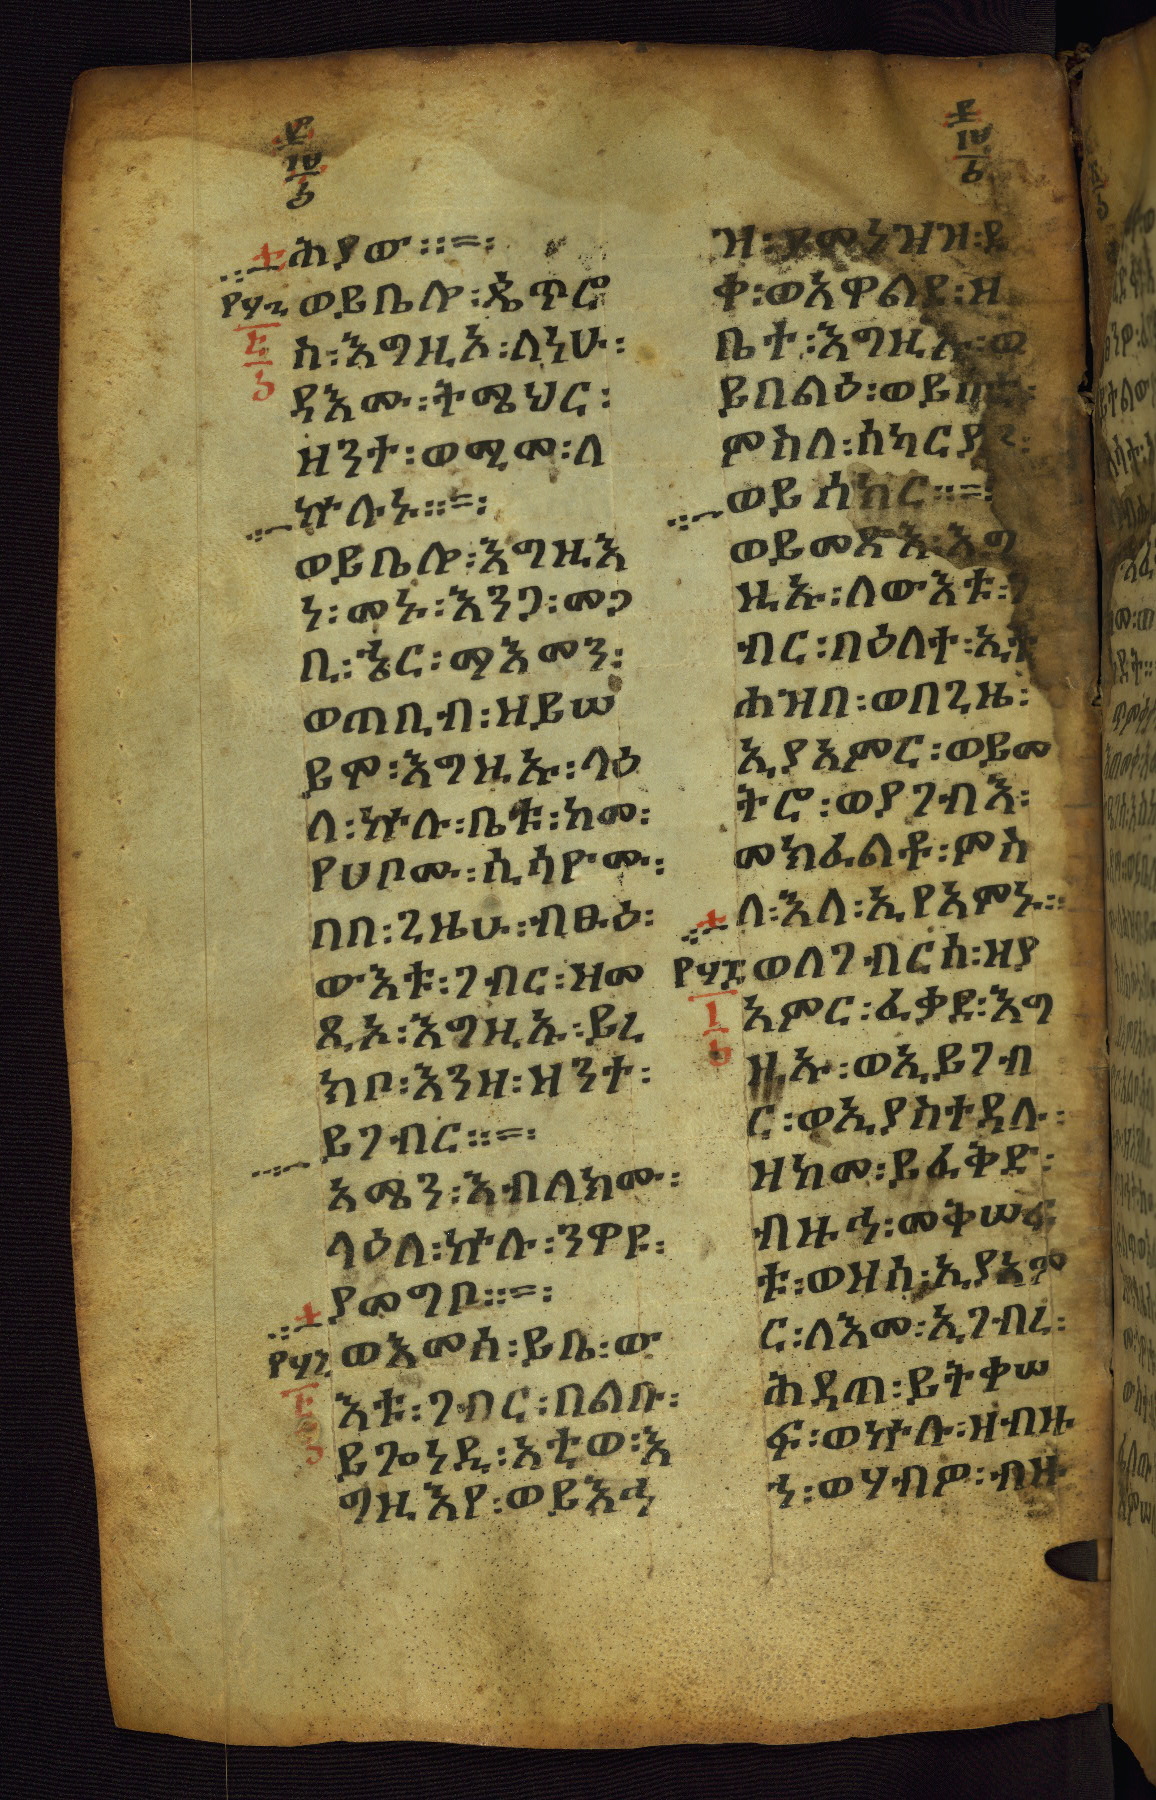 ሕያው ።=፡
ወይቤሎ ፡ ጴጥሮ
ስ ፡ እግዚኦ ፡ ለነሁ ፡
ዳእሙ ፡ ትሜህር ፡
ዘንተ ፡ ወሚመ ፡ ለ
ኵሉኑ ።=፡
ወይቤሎ ፡ እግዚእ
ነ ፡ መኑ ፡ እንጋ ፡ መጋ
ቢ ፡ ኄር ፡ ማእመን ፡
ወጠቢብ ፡ ዘይሠ
ይሞ ፡ እግዚኡ ፡ ላዕ
ለ ፡ ኵሉ ፡ ቤቱ ፡ ከመ ፡
የሀቦሙ ፡ ሲሳዮሙ ፡
በበ ፡ ጊዜሁ ፡ ብፁዕ ፡
ውእቱ ፡ ገብር ፡ ዝመ
ጺኦ ፡ እግዚኡ ፡ ይረ
ክቦ ፡ እንዘ ፡ ዝንተ ፡
ይገብር ።=፡
አሜን ፡ እብለክሙ ፡
ላዕለ ፡ ኵሉ ፡ ንዋዩ ፡
ያመግቦ ።=፡
ወእመሰ ፡ ይቤ ፡ ው
እቱ ፡ ገብር ፡ በልቡ ፡
ይጐነዲ ፡ አቲወ ፡ እ
ግዚእየ ፡ ወይእኀ
ዝ ፡ ይመነዝዝ ፡ ደ
ቀ ፡ ወአዋልደ ፡ ዘ
ቤተ ፡ እግዚኡ ፡ ወ
ይበልዕ ፡
ምስለ ፡ ሰካርያን ፡
ወይሰክር ።=፡
ወይመጽእ ፡ እግ
ዚኡ ፡ ለውእቱ ፡ ገ
ብር ፡ በዕለተ ፡ ኢት
ሐዝበ ፡ ወበጊዜ ፡
ኢያአምር ፡ ወይመ
ትሮ ፡ ወያገብእ ፡
መክፈልቶ ፡ ምስ
ለ ፡ እለ ፡ ኢየአምኑ ።
ወለገብርሰ ፡ ዝያ
አምር ፡ ፈቃደ ፡ እግ
ዚኡ ፡ ወኢይገብ
ር ፡ ወኢያስተዳሉ ፡
ዘከመ ፡ ይፈቅድ ፡
ብዙኀ ፡ መቅሠፍ
ቱ ፡ ወዝሰ ፡ ኢያአም
ር ፡ ለእመ ፡ ኢገብረ ፡
ሕዳጠ ፡ ይትቀሠ
ፍ ፡ ወኵሉ ፡ ዘብዙ
ኀ ፡ ወሃብዎ ፡ ብዙ